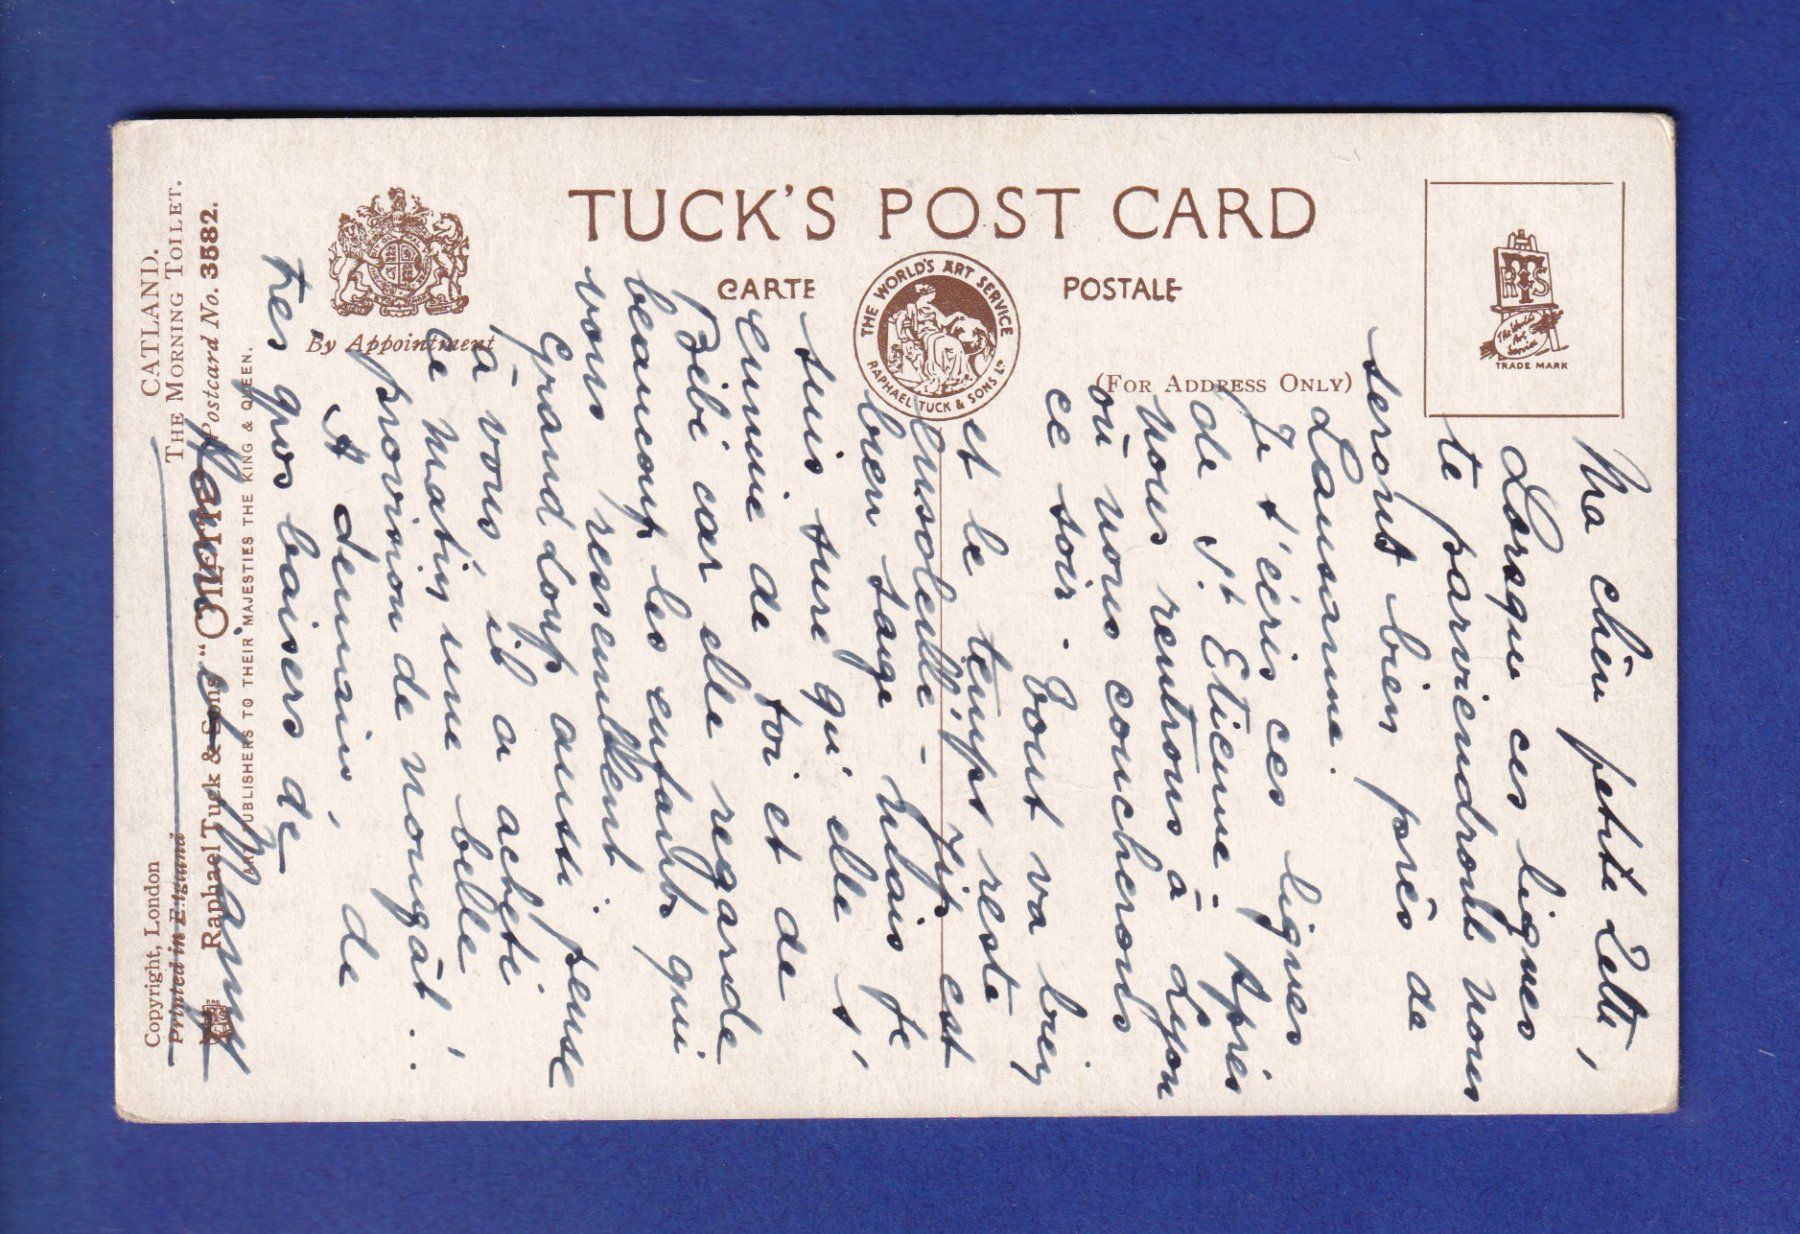 TUCK'S POST CARD
CARTE POSTALE
(FOR ADDRESS ONLY)
THE WORLD'S ART SERVICE
RAPHAEL TUCK & SONS LTD
By Appointment
RTS
The World's Art Service
TRADE MARK
CATLAND.
THE MORNING TOILET.
Postcard No. 3582.
Raphael Tuck & Sons "OILETTE"
ART PUBLISHERS TO THEIR MAJESTIES THE KING & QUEEN.
Copyright, London
Printed in England
Ma chère petite Zette,
Lorsque ces lignes
te parviendront nous
seront bien près de
Lausanne.
Je t'écris ces lignes
de St Etienne - Après
nous rentrons à Lyon
où nous coucherons
ce soir. Tout va bien
et le temps reste
ensoleillé - Zip est
bien sage mais je
suis sure qu'elle s'
ennuie de toi et de
Bébé car elle regarde
beaucoup les enfants qui
vous ressemblent.
Grand loup aussi pense
à vous, il a acheté
ce matin une belle
provision de nougat..
A demain, de
tres gros baisers de
Mamy